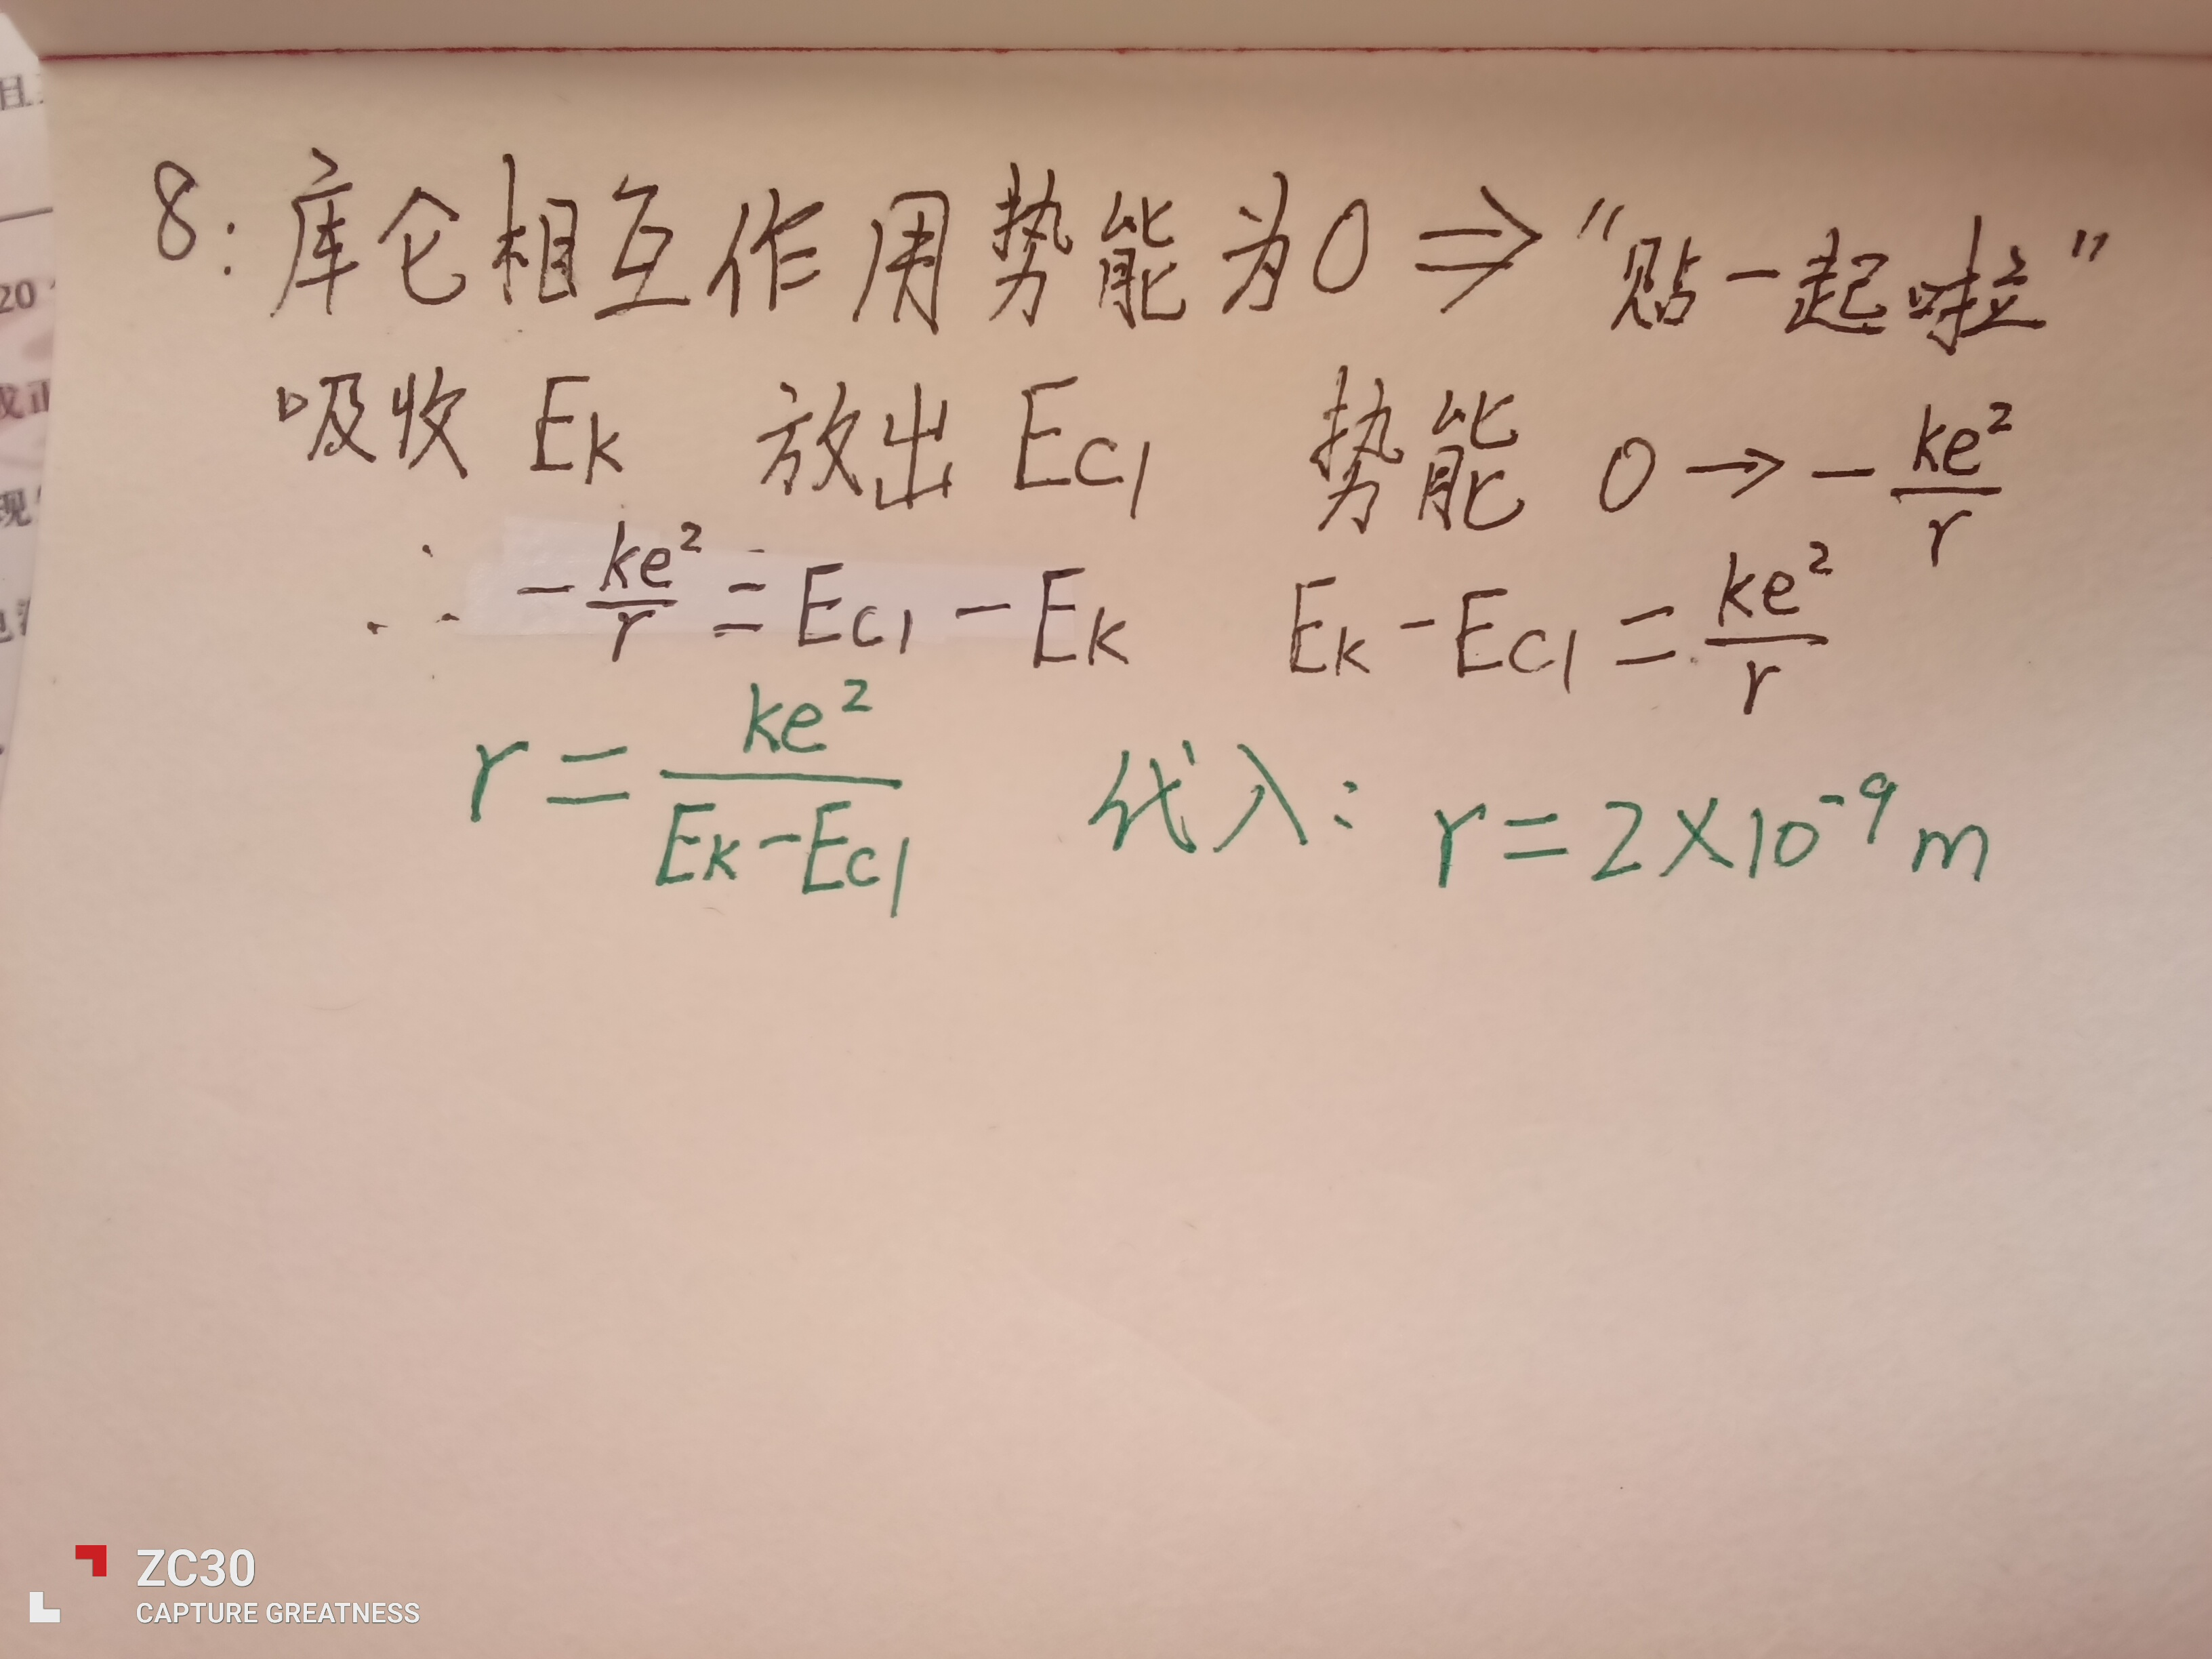 8:库仑相互作用势能为0⇒“贴一起啦”
吸收 EK 放出 ECl 势能 0→-ke²/r
∴ -ke²/r=ECl-EK EK-ECl=ke²/r
r=ke²/(EK-ECl) 代入:r=2×10⁻⁹m
20
现
ZC30
CAPTURE GREATNESS